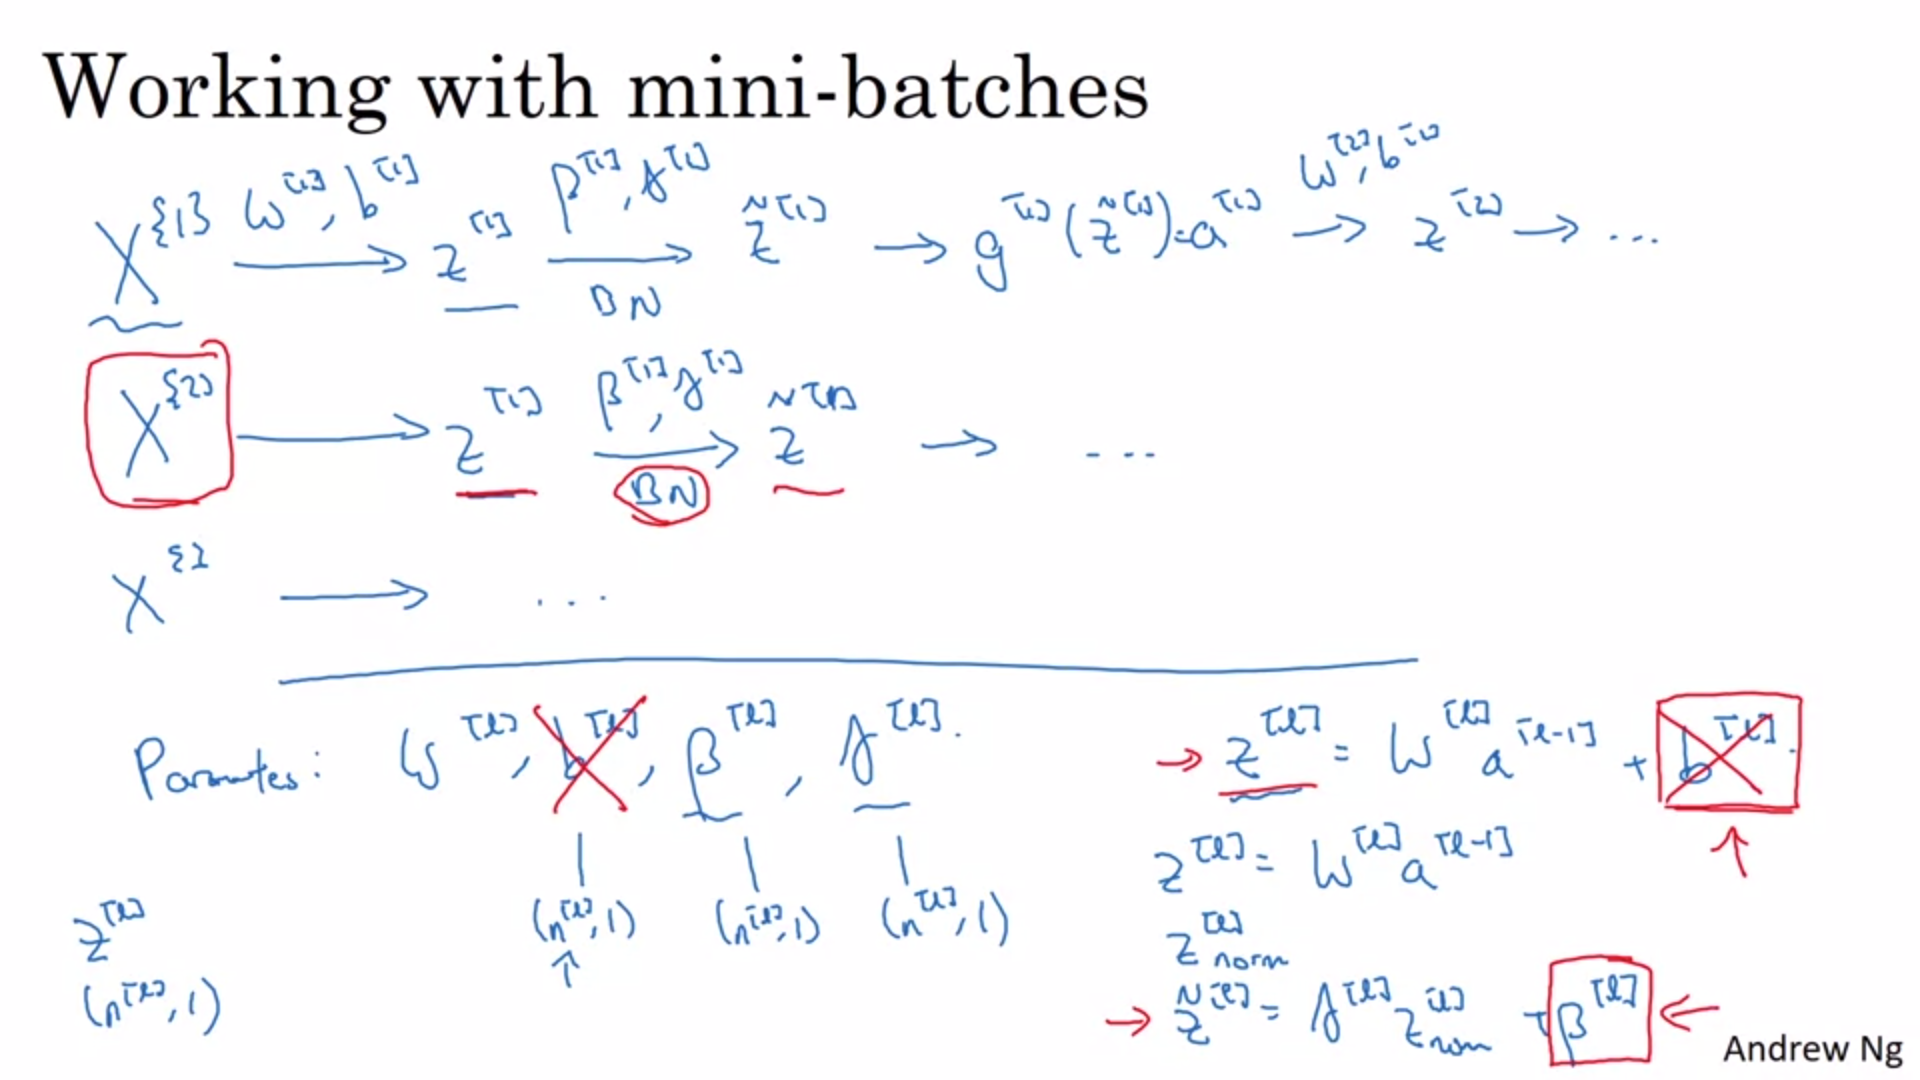 Working with mini-batches
X^{1} W^[1], b^[1] → z^[1] β^[1], γ^[1] BN → z̃^[1] → g^[1](z̃^[1]) = a^[1] W^[2], b^[2] → z^[2] → ...
X^{2} → z^[1] β^[1], γ^[1] BN → z̃^[1] → ...
X^{} → ...
Parameters: W^[l], b^[l], β^[l], γ^[l].
(n^[l], 1) (n^[l], 1) (n^[l], 1)
z^[l]
(n^[l], 1)
→ z^[l] = W^[l] a^[l-1] + b^[l].
z^[l] = W^[l] a^[l-1]
z^[l] norm
→ z̃^[l] = γ^[l] z^[l] norm + β^[l] ←
Andrew Ng